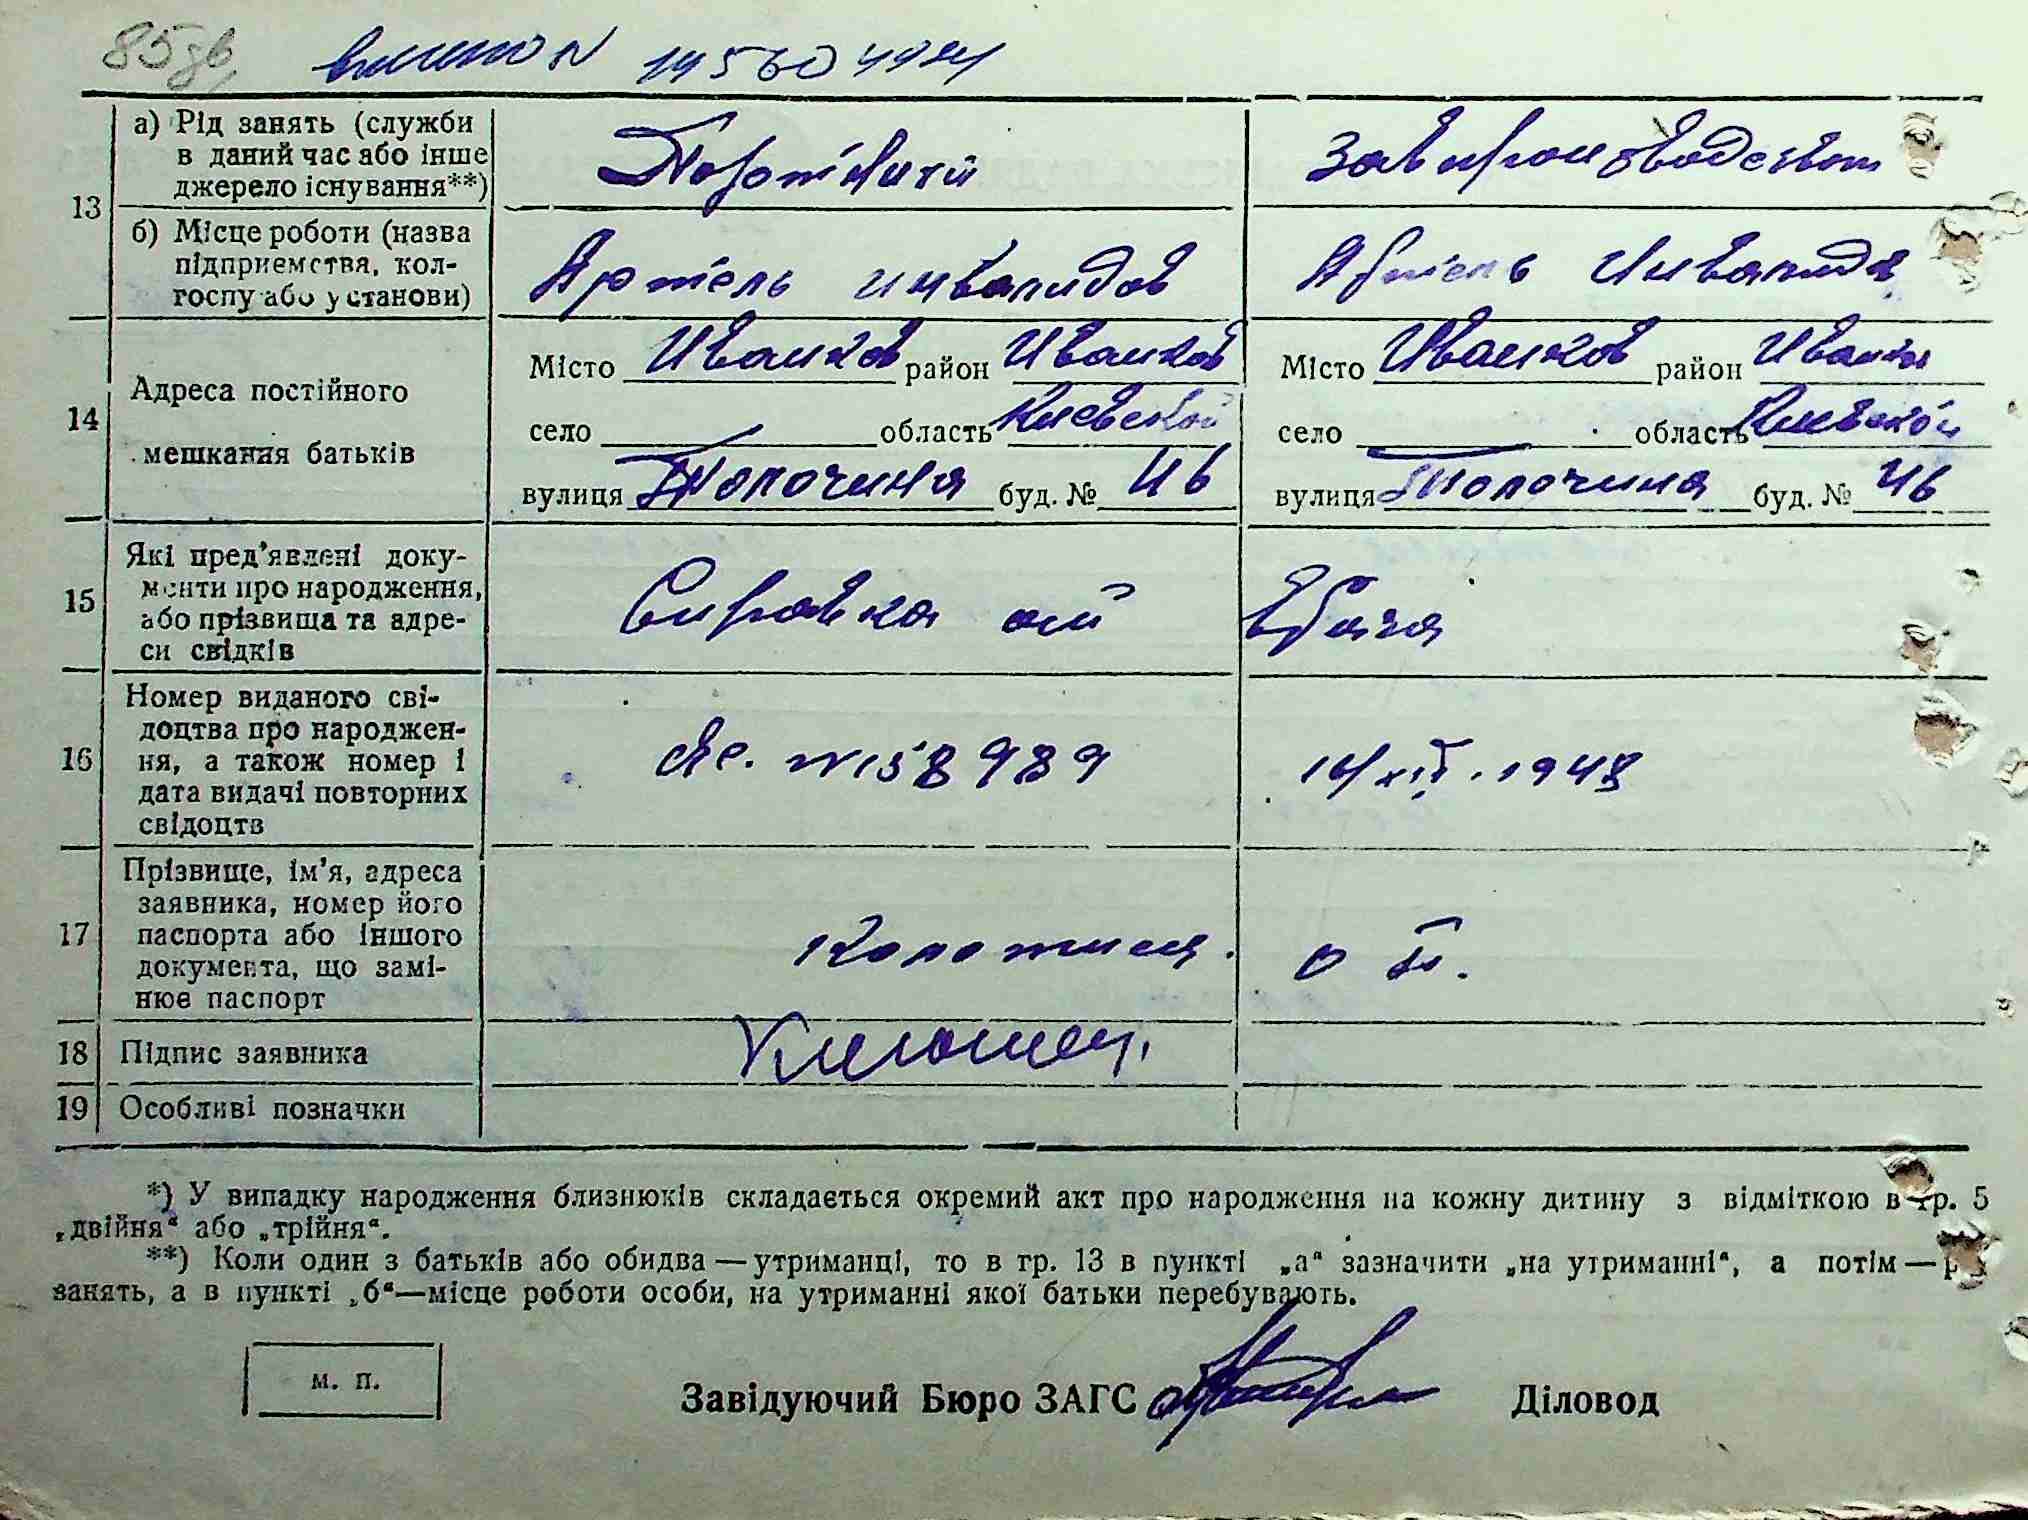 85 зв
13
а) Рід занять (служби
в даний час або інше
джерело існування**)
Завпроизводством
б) Місце роботи (назва
підприємства, кол-
госпу або установи)
Артель инвалидов
Артель Инвалидов
14
Адреса постійного
мешкання батьків
Місто Иванков район Иванков
село область Киевской
вулиця Толочина буд. № 46
Місто Иванков район Иванков
село область Киевской
вулиця Толочина буд. № 46
15
Які пред'явлені доку-
менти про народження,
або прізвища та адре-
си свідків
Справка от Врача
16
Номер виданого сві-
доцтва про народжен-
ня, а також номер і
дата видачі повторних
свідоцтв
14/XII. 1948
17
Прізвище, ім'я, адреса
заявника, номер його
паспорта або іншого
документа, що замі-
нює паспорт
18
Підпис заявника
19
Особливі позначки
*) У випадку народження близнюків складається окремий акт про народження на кожну дитину з відміткою в гр. 5
„двійня“ або „трійня“.
**) Коли один з батьків або обидва — утриманці, то в гр. 13 в пункті „а“ зазначити „на утриманні“, а потім — рід
занять, а в пункті „б“—місце роботи особи, на утриманні якої батьки перебувають.
м. п.
Завідуючий Бюро ЗАГС Діловод